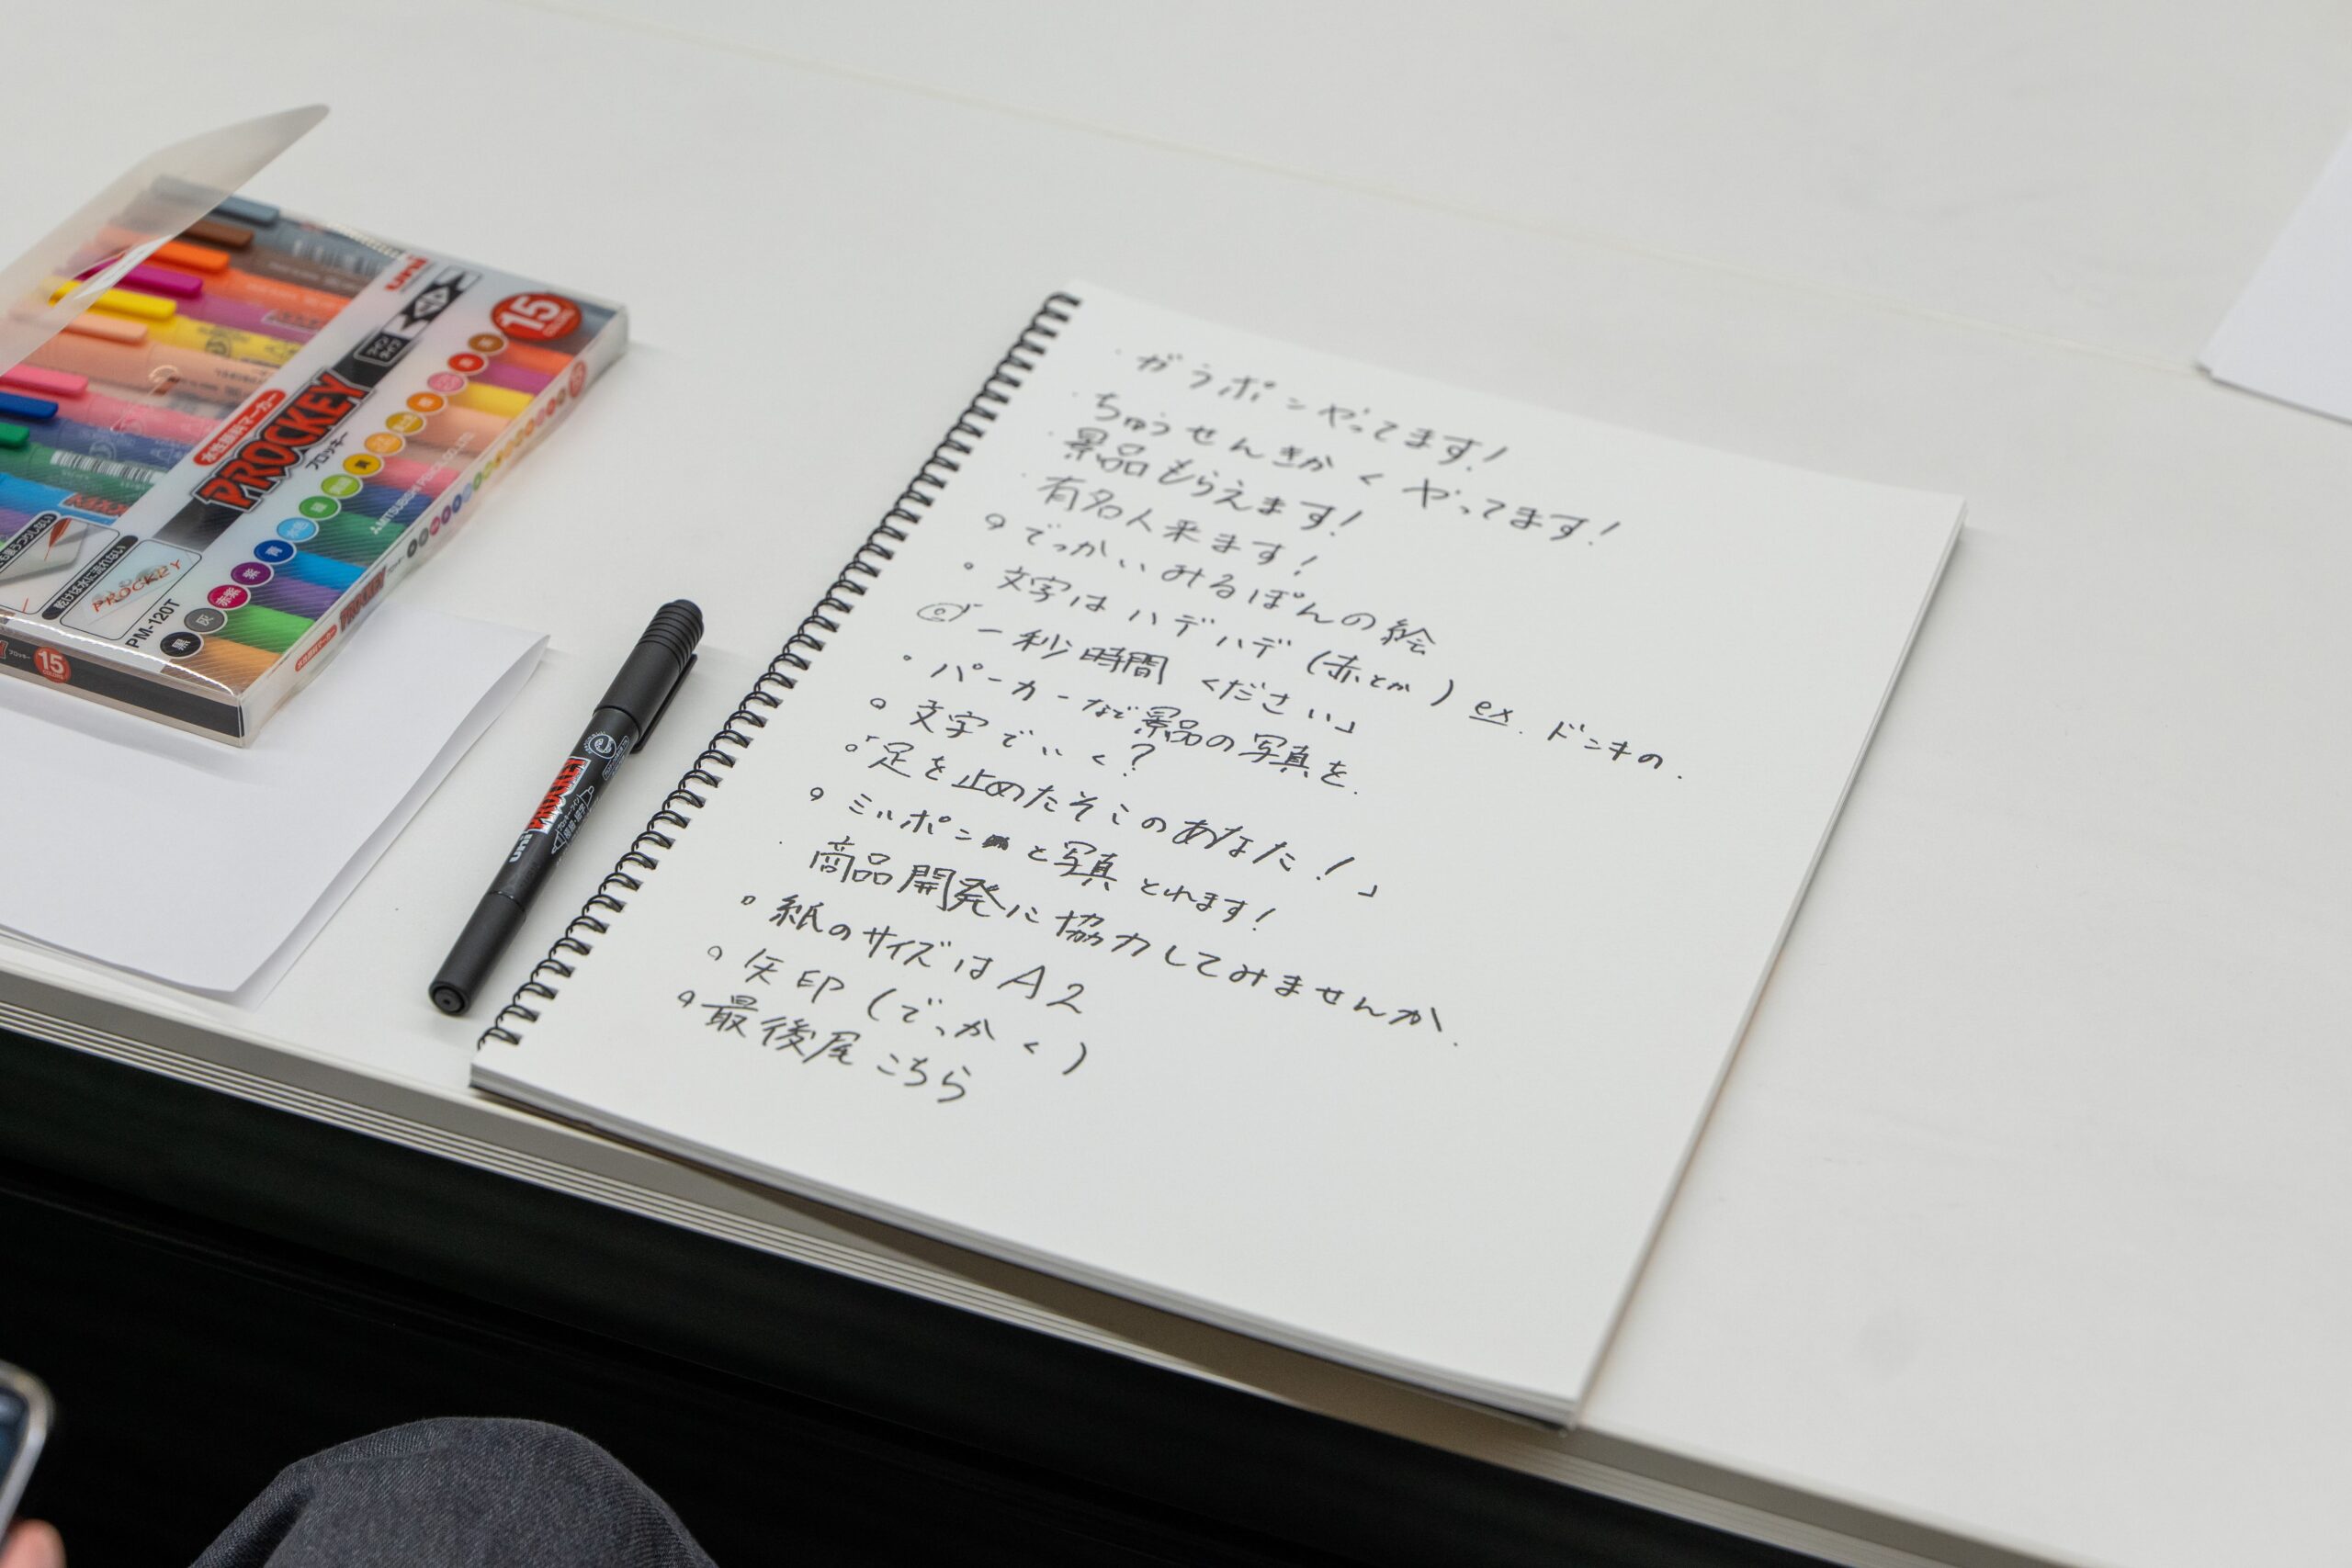 uni
15
水性顔料マーカー
PROCKEY
プロッキー
MITSUBISHI PENCIL CO.,LTD
乾けば水に流れない
PROCKEY
PM-120T
黒
灰
赤紫
紫
青
水色
緑
黄
15
PROCKEY
uni PROCKEY
・ガラポンやってます!
・ちゅうせんきかくやってます!
・景品もらえます!
・有名人来ます!
○でっかいみるぽんの絵
○文字はハデハデ(赤とか) ex. ドンキの.
◎「一秒時間ください」
・パーカーなど景品の写真を.
○文字でいく?
○「足を止めたそこのあなた!」
○ミルポンと写真とれます!
・商品開発に協力してみませんか.
○紙のサイズはA2
○矢印(でっかく)
○最後尾こちら